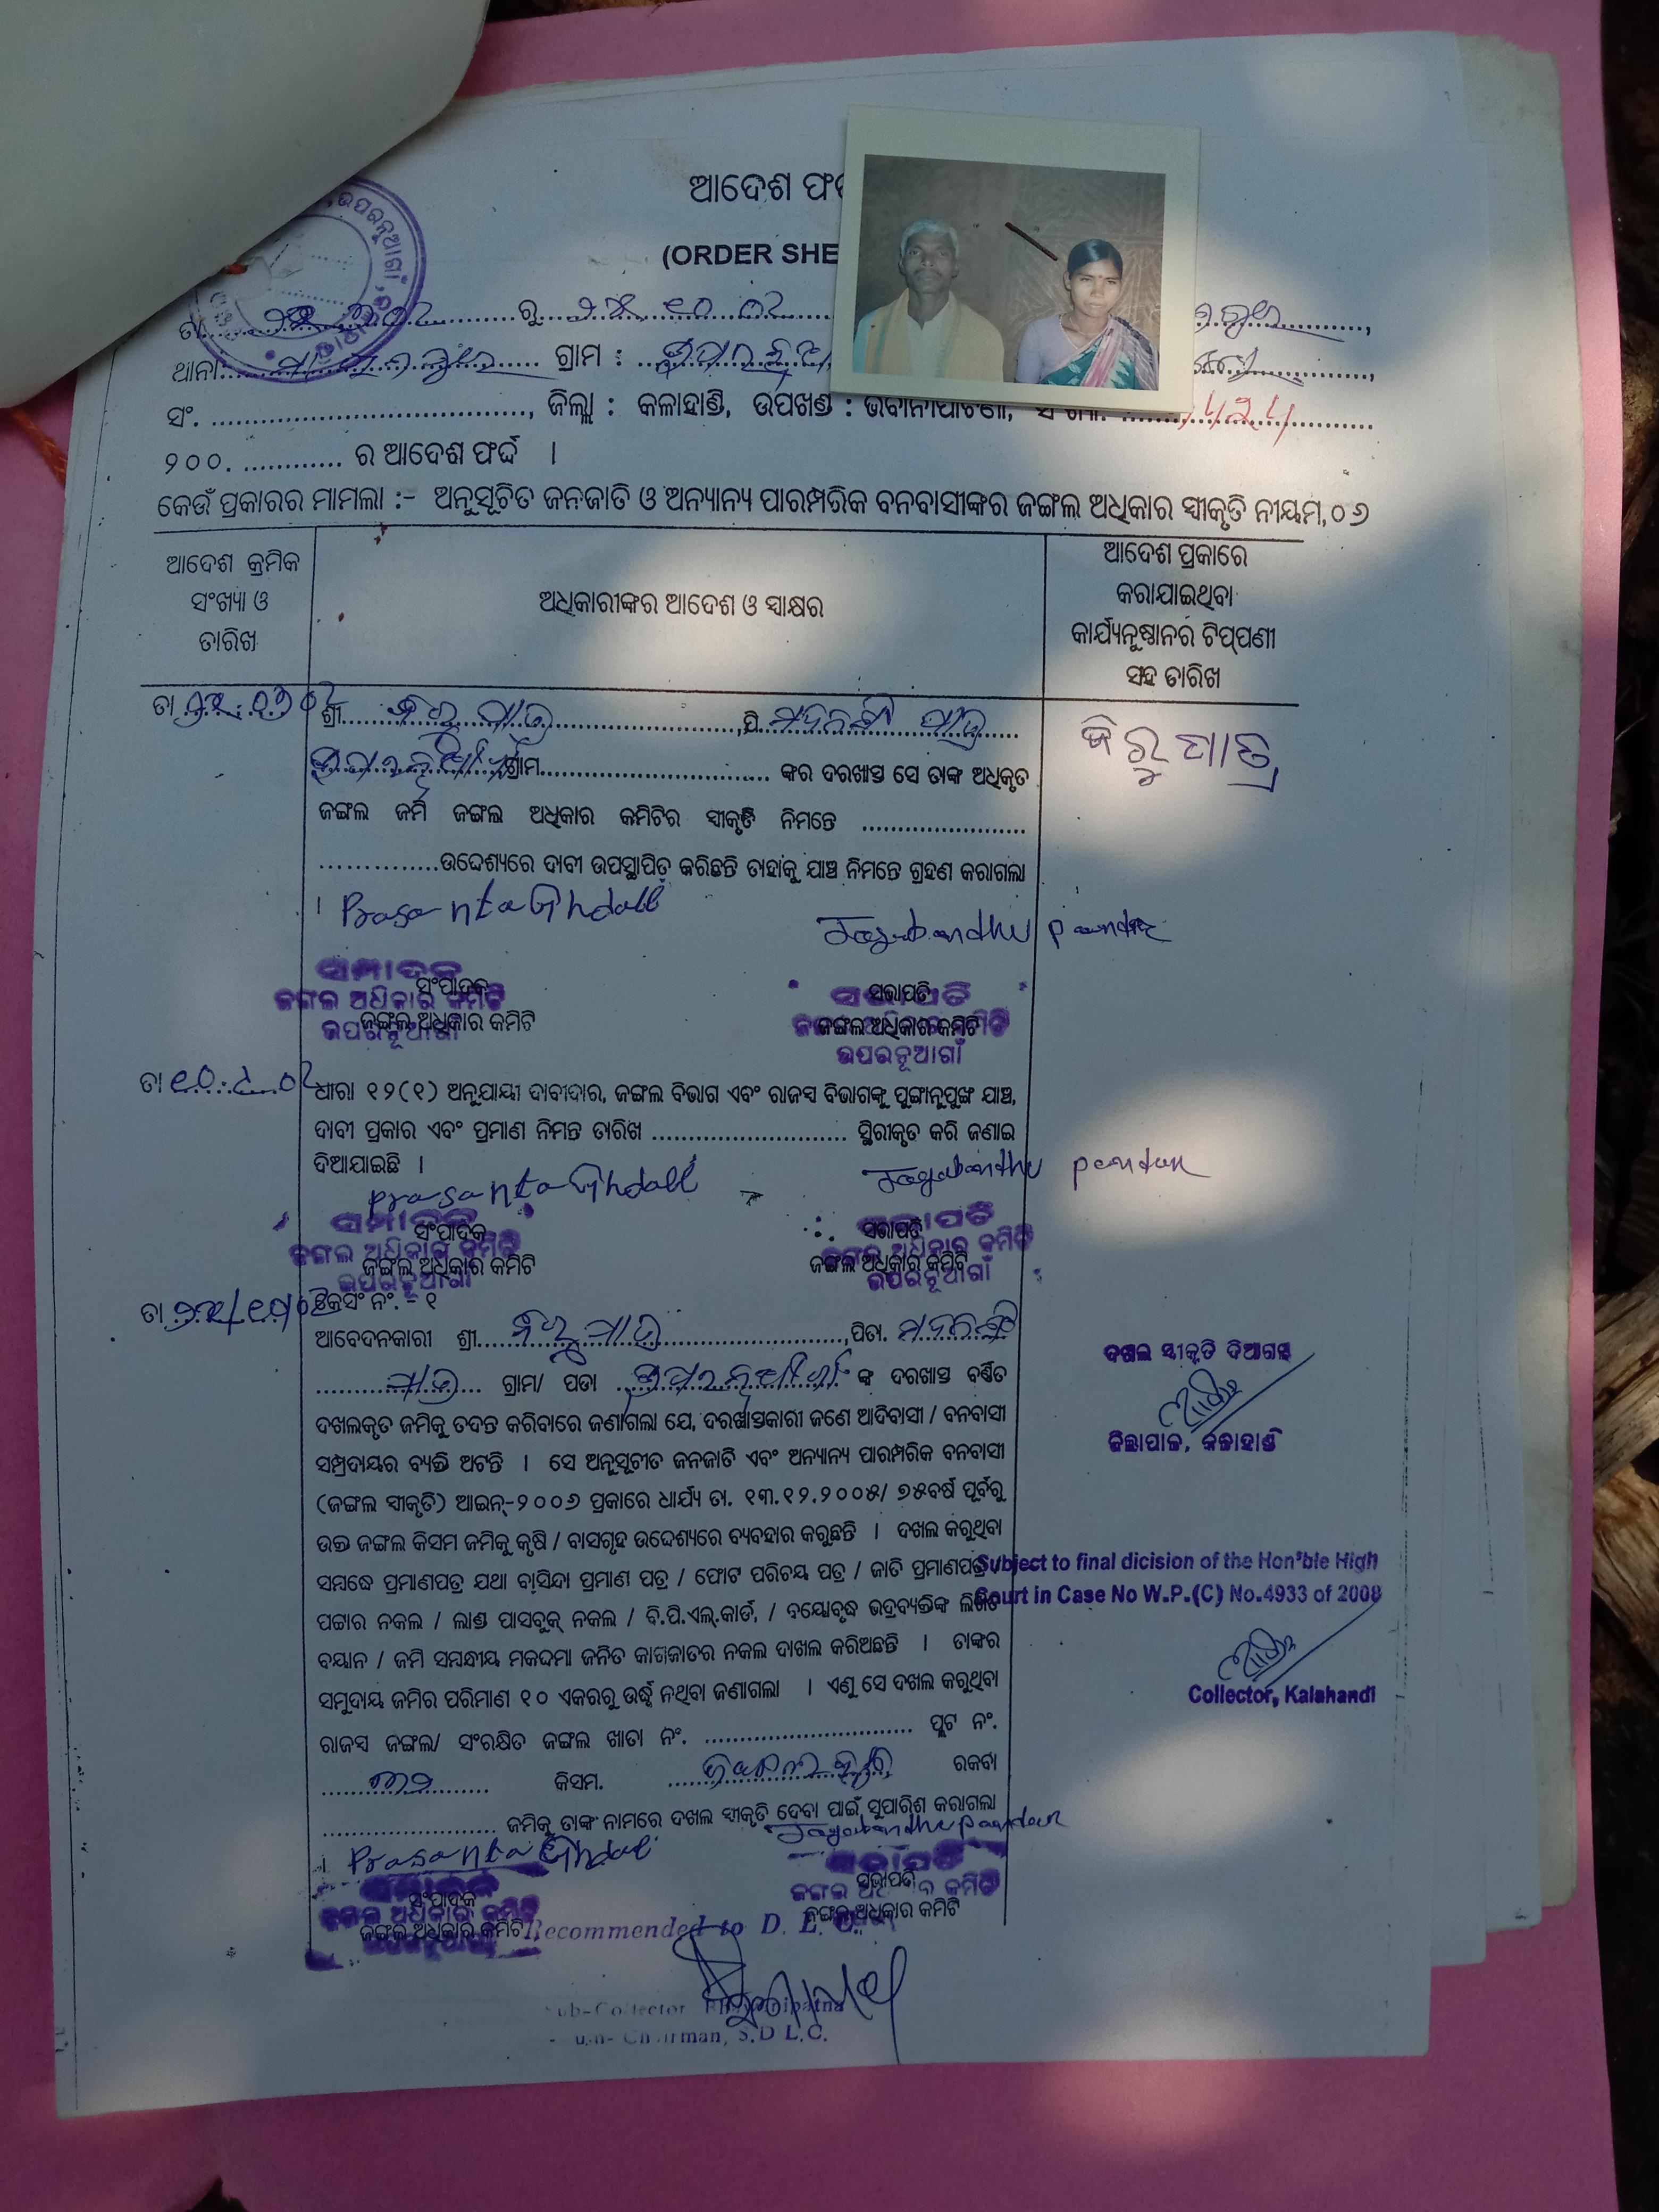 ଆଦେଶ ଫ
(ORDER SHE
ଉପରନୂଆଗାଁ
ତା
ରୁ
ଥାନା
ଗ୍ରାମ :
ସଂ. , ଜିଲ୍ଲା : କଳାହାଣ୍ଡି, ଉପଖଣ୍ଡ : ଭବାନୀପାଟଣା,
୨୦୦. ର ଆଦେଶ ଫର୍ଦ୍ଦ ।
କେଉଁ ପ୍ରକାରର ମାମଲା :- ଅନୁସୂଚିତ ଜନଜାତି ଓ ଅନ୍ୟାନ୍ୟ ପାରମ୍ପରିକ ବନବାସୀଙ୍କର ଜଙ୍ଗଲ ଅଧିକାର ସ୍ୱୀକୃତି ନୀୟମ,୦୬
ଆଦେଶ କ୍ରମିକ
ସଂଖ୍ୟା ଓ
ତାରିଖ
ଅଧିକାରୀଙ୍କର ଆଦେଶ ଓ ସ୍ୱାକ୍ଷର
ଆଦେଶ ପ୍ରକାରେ
କରାଯାଇଥିବା
କାର୍ଯ୍ୟନୁଷ୍ଠାନର ଟିପ୍ପଣୀ
ସହ ତାରିଖ
ତା
ଶ୍ରୀ ପାତ୍ର ,ପି. ପାତ୍ର
ଗ୍ରାମ ଙ୍କର ଦରଖାସ୍ତ ସେ ତାଙ୍କ ଅଧିକୃତ
ଜଙ୍ଗଲ ଜମି ଜଙ୍ଗଲ ଅଧିକାର କମିଟିର ସ୍ୱୀକୃତି ନିମନ୍ତେ
ଉଦ୍ଦେଶ୍ୟରେ ଦାବୀ ଉପସ୍ଥାପିତ କରିଛନ୍ତି ତାହାକୁ ଯାଞ୍ଚ ନିମନ୍ତେ ଗ୍ରହଣ କରାଗଲା
।
ପାତ୍ର
Prasanta Ghdall
Jagabandhu
ସମ୍ପାଦକ
ଜଙ୍ଗଲ ଅଧିକାର କମିଟି
ଉପରନୂଆଗାଁ
ସଂପାଦକ
ଜଙ୍ଗଲ ଅଧିକାର କମିଟି
ସଭାପତି
ଜଙ୍ଗଲ ଅଧିକାର କମିଟି
ଉପରନୂଆଗାଁ
ସଭାପତି
ଜଙ୍ଗଲ ଅଧିକାର କମିଟି
ତା
ଧାରା ୧୨(୧) ଅନୁଯାୟୀ ଦାବୀଦାର, ଜଙ୍ଗଲ ବିଭାଗ ଏବଂ ରାଜସ୍ୱ ବିଭାଗଙ୍କୁ ପୁଙ୍ଖାନୁପୁଙ୍ଖ ଯାଞ୍ଚ,
ଦାବୀ ପ୍ରକାର ଏବଂ ପ୍ରମାଣ ନିମନ୍ତ ତାରିଖ ସ୍ଥିରୀକୃତ କରି ଜଣାଇ
ଦିଆଯାଇଛି ।
prasanta Ghdall
Jagabandhu
ସମ୍ପାଦକ
ଜଙ୍ଗଲ ଅଧିକାର କମିଟି
ଉପରନୂଆଗାଁ
ସଂପାଦକ
ଜଙ୍ଗଲ ଅଧିକାର କମିଟି
ସଭାପତି
ଜଙ୍ଗଲ ଅଧିକାର କମିଟି
ଉପରନୂଆଗାଁ
ସଭାପତି
ଜଙ୍ଗଲ ଅଧିକାର କମିଟି
ତା
ନଂ. - ୧
ଆବେଦନକାରୀ ଶ୍ରୀ ପାତ୍ର ,ପିତା.
ପାତ୍ର ଗ୍ରାମ/ ପଡା ଙ୍କ ଦରଖାସ୍ତ ବର୍ଣ୍ଣିତ
ଦଖଲକୃତ ଜମିକୁ ତଦନ୍ତ କରିବାରେ ଜଣାଗଲା ଯେ, ଦରଖାସ୍ତକାରୀ ଜଣେ ଆଦିବାସୀ / ବନବାସୀ
ସମ୍ପ୍ରଦାୟର ବ୍ୟକ୍ତି ଅଟନ୍ତି । ସେ ଅନୁସୂଚୀତ ଜନଜାତି ଏବଂ ଅନ୍ୟାନ୍ୟ ପାରମ୍ପରିକ ବନବାସୀ
(ଜଙ୍ଗଲ ସ୍ୱୀକୃତି) ଆଇନ୍-୨୦୦୬ ପ୍ରକାରେ ଧାର୍ଯ୍ୟ ତା. ୧୩.୧୨.୨୦୦୫/ ୭୫ବର୍ଷ ପୂର୍ବରୁ
ଉକ୍ତ ଜଙ୍ଗଲ କିସମ ଜମିକୁ କୃଷି / ବାସଗୃହ ଉଦ୍ଦେଶ୍ୟରେ ବ୍ୟବହାର କରୁଛନ୍ତି । ଦଖଲ କରୁଥିବା
ସମ୍ବନ୍ଧେ ପ୍ରମାଣପତ୍ର ଯଥା ବାସିନ୍ଦା ପ୍ରମାଣ ପତ୍ର / ଫୋଟ ପରିଚୟ ପତ୍ର / ଜାତି ପ୍ରମାଣପତ୍ର
ପଟ୍ଟାର ନକଲ / ଲାଣ୍ଡ ପାସବୁକ୍ ନକଲ / ବି.ପି.ଏଲ୍.କାର୍ଡ, / ବୟୋବୃଦ୍ଧ ଭଦ୍ରବ୍ୟକ୍ତିଙ୍କ ଲିଖିତ
ବୟାନ / ଜମି ସମ୍ବନ୍ଧୀୟ ମକଦ୍ଦମା ଜନିତ କାଗଜାତର ନକଲ ଦାଖଲ କରିଅଛନ୍ତି । ତାଙ୍କର
ସମୁଦାୟ ଜମିର ପରିମାଣ ୧୦ ଏକରରୁ ଉର୍ଦ୍ଧ୍ୱ ନଥିବା ଜଣାଗଲା । ଏଣୁ ସେ ଦଖଲ କରୁଥିବା
ରାଜସ୍ୱ ଜଙ୍ଗଲ/ ସଂରକ୍ଷିତ ଜଙ୍ଗଲ ଖାତା ନଂ. ପ୍ଲଟ ନଂ.
କିସମ. ରକବା
ଜମିକୁ ତାଙ୍କ ନାମରେ ଦଖଲ ସ୍ୱୀକୃତି ଦେବା ପାଇଁ ସୁପାରିଶ କରାଗଲା
।
ଦଖଲ ସ୍ୱୀକୃତି ଦିଆଗଲା
ଜିଲ୍ଲାପାଳ, କଳାହାଣ୍ଡି
Subject to final dicision of the Hon'ble High
Court in Case No W.P.(C) No.4933 of 2008
Collector, Kalahandi
Prasanta Ghdall
Jagabandhu
ସଂପାଦକ
ଜଙ୍ଗଲ ଅଧିକାର କମିଟି
ସଭାପତି
ଜଙ୍ଗଲ ଅଧିକାର କମିଟି
Recommended to D. L. C.
Sub-Collector Bhawanipatna
Chairman, S.D L.C.